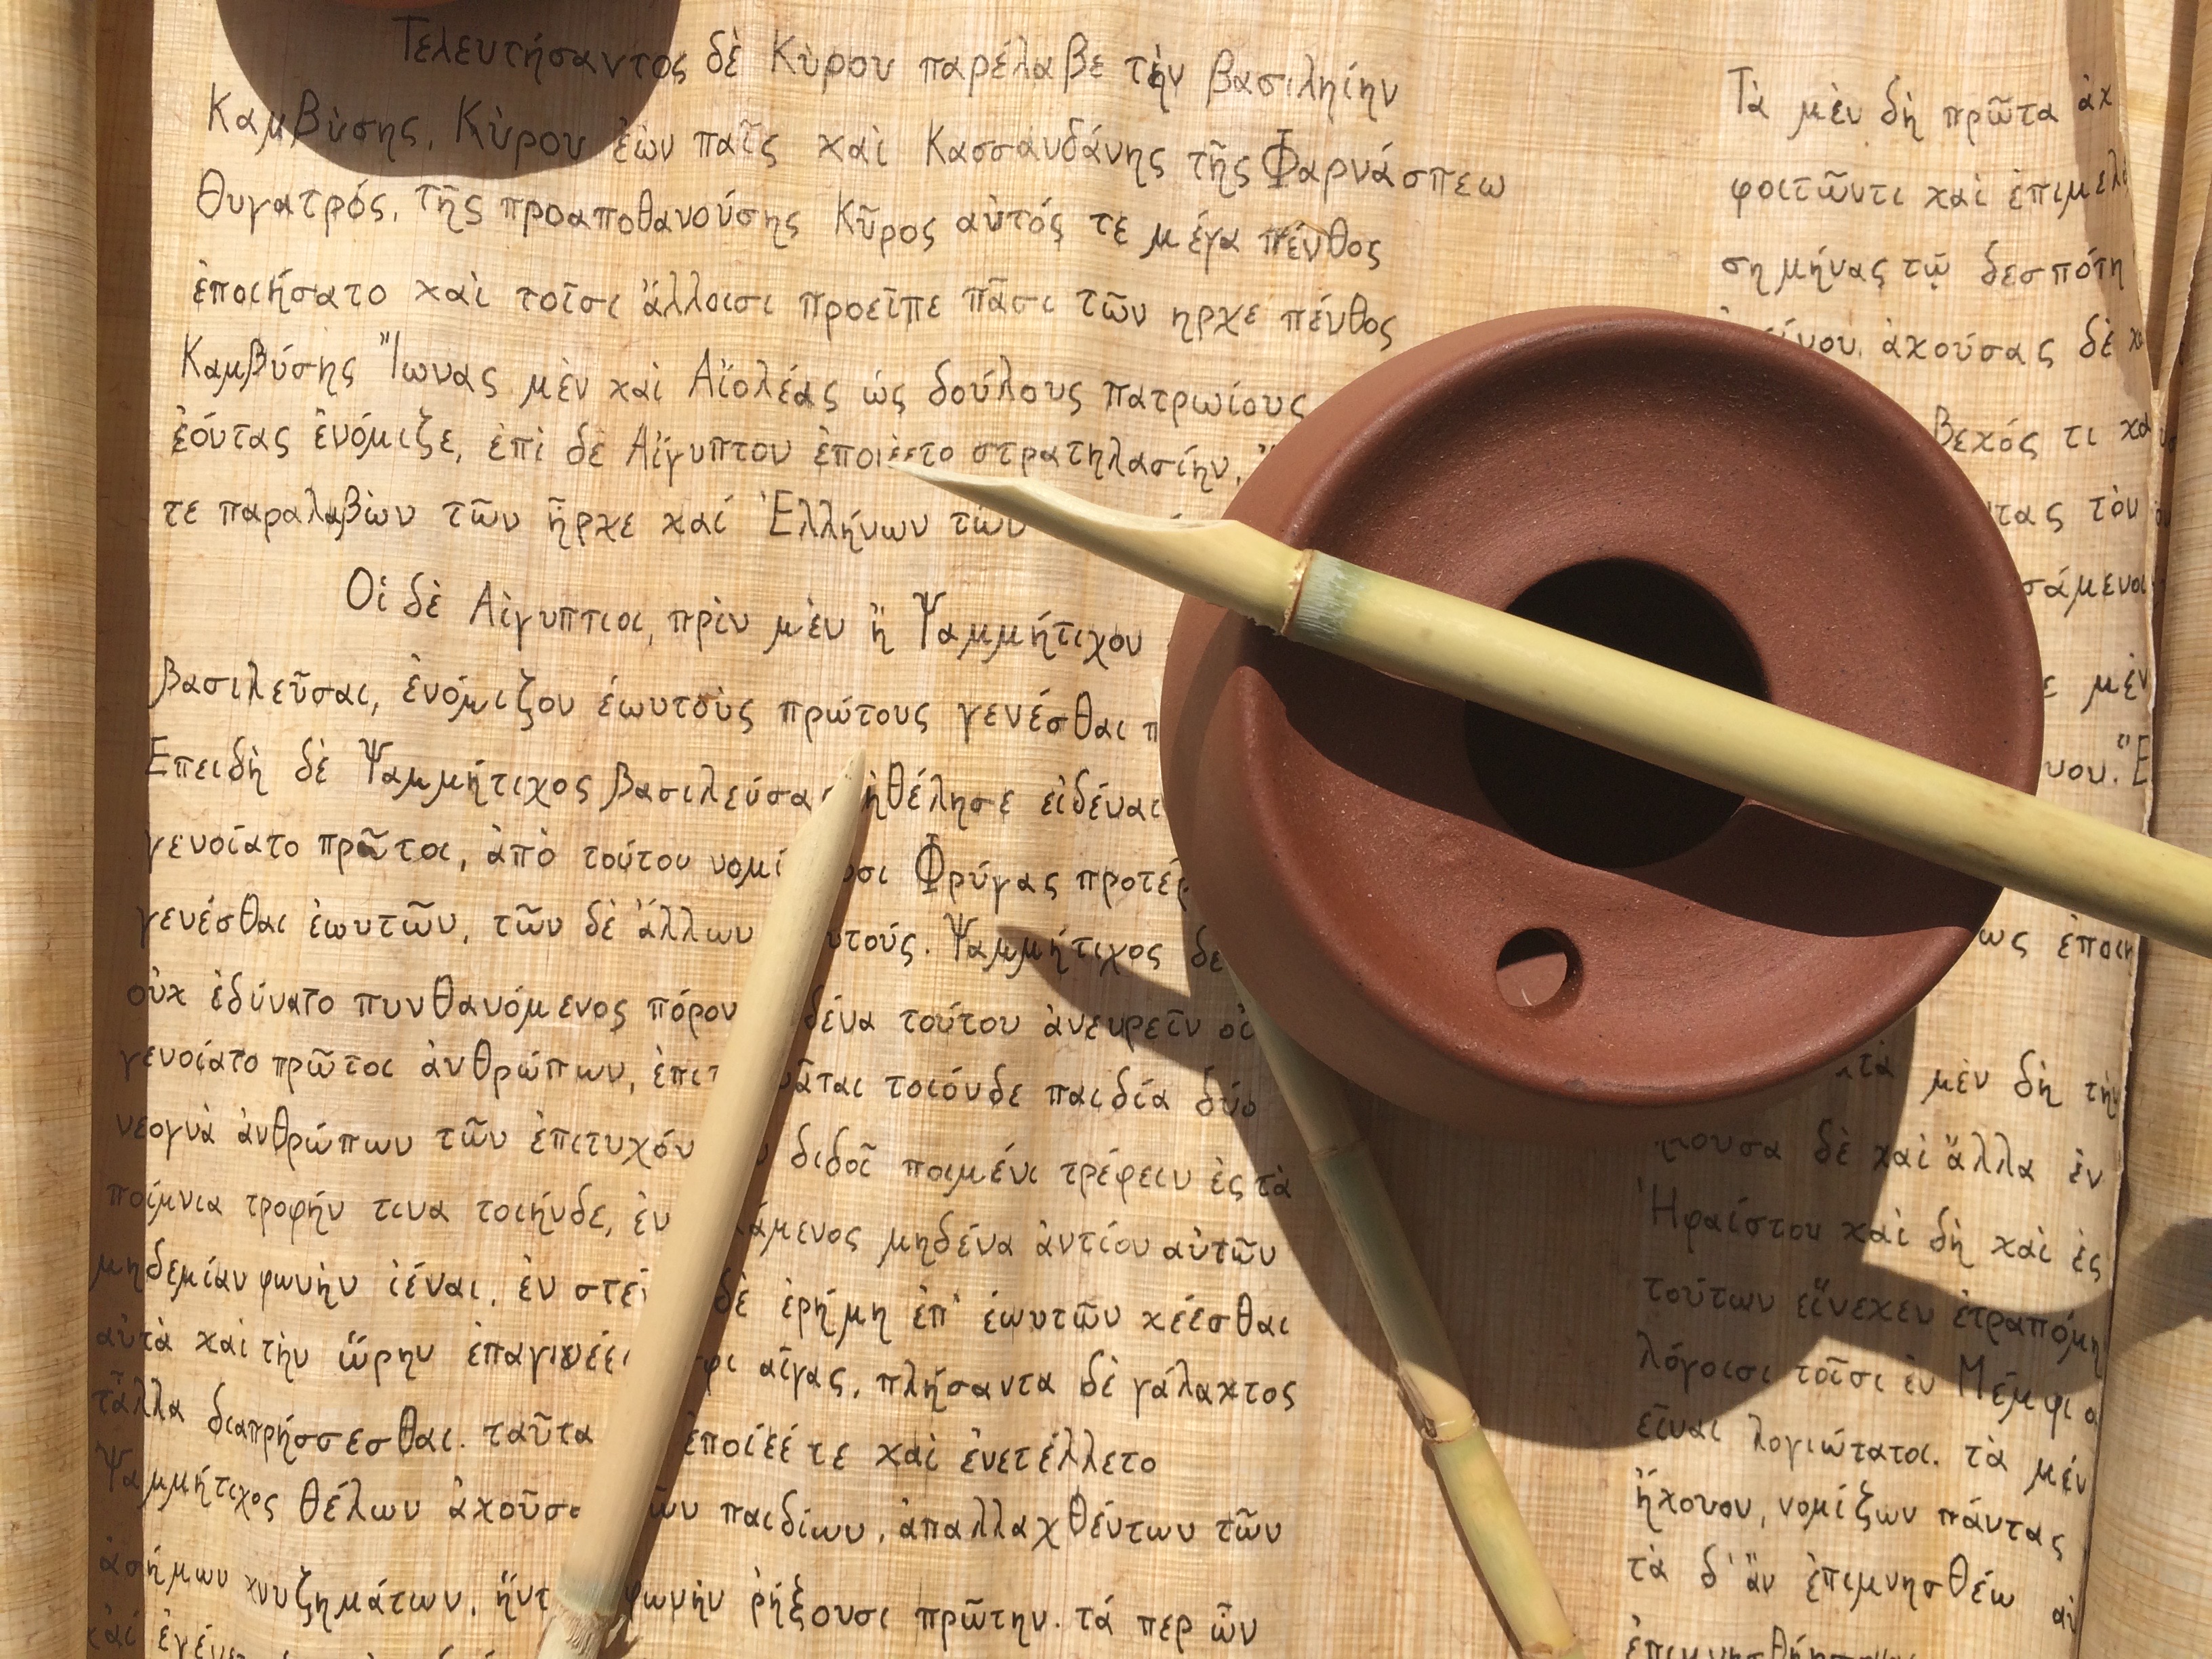 Τελευτήσαντος δὲ Κὺρου παρέλαβε τὴν βασιληίην
Καμβὺσης, Κὺρου ἐὼν παῖς καὶ Κασσανδάνης τῆς Φαρνάσπεω
θυγατρός, τῆς προαποθανούσης Κῦρος αὐτός τε μέγα πένθος
ἐποιήσατο καὶ τοῖσι ἄλλοισι προεῖπε πᾶσι τῶν ηρχε πένθος
Καμβύσης Ἴωνας μὲν καὶ Αἰολέας ὡς δούλους πατρωίους
ἐόντας ἐνόμιζε, ἐπὶ δὲ Αἴγυπτον ἐποιέετο στρατηλασίην,
τε παραλαβὼν τῶν ἦρχε καί Ἑλλήνων τῶν
Οἱ δὲ Αἰγυπτιοι, πρὶν μὲν ἢ Ψαμμήτιχον
βασιλεῦσαι, ἐνόμιζον ἑωυτοὺς πρώτους γενέσθαι
Επειδὴ δὲ Ψαμμήτιχος βασιλεύσας ἠθέλησε εἰδέναι
γενοίατο πρῶτοι, ἀπὸ τούτου Φρύγας
γενέσθαι ἑωυτῶν, τῶν δὲ ἄλλων Ψαμμήτιχος
οὐκ ἐδύνατο πυνθανόμενος πόρον τούτου ἀνευρεῖν οἳ
γενοίατο πρῶτοι ἀνθρώπων, τοιόνδε παιδία δύο
νεογνὰ ἀνθρώπων τῶν διδοῖ ποιμένι τρέφειν ἐς τὰ
ποίμνια τροφήν τινα τοιήνδε, μηδένα ἀντίον αὐτῶν
μηδεμίαν φωνὴν ἱέναι, ἐν δὲ ἐρήμη ἐπ' ἑωυτῶν κέεσθαι
αὐτὰ καὶ τὴν ὥρην αἶγας, πλήσαντα δὲ γάλακτος
τἆλλα διαπρήσσεσθαι. ταῦτα ἐποίεέ τε καὶ ἐνετέλλετο
Ψαμμήτιχος θέλων ἀκοῦσαι παιδίων, ἀπαλλαχθέντων τῶν
ἀσήμων κνυζημάτων, φωνὴν ῥήξουσι πρῶτην. τά περ ὦν
καὶ
Τὰ μὲν δὴ πρῶτα
φοιτῶντι καὶ
σημήνας τῷ δεσπότη
ἀκούσας δὲ
Βεκός τι
τὸν
μὲν
ὡς
μὲν δὴ τὴν
δὲ καὶ ἄλλα ἐν
Ἡφαίστου καὶ δὴ καὶ ἐς
τούτων εἵνεκεν ἐτραπόμην
λόγοισι τοῖσι ἐν Μέμφι
εἶναι λογιώτατοι. τὰ μέν
ἤκουον, νομίζων πάντας
τὰ δ' ἂν ἐπιμνησθέω